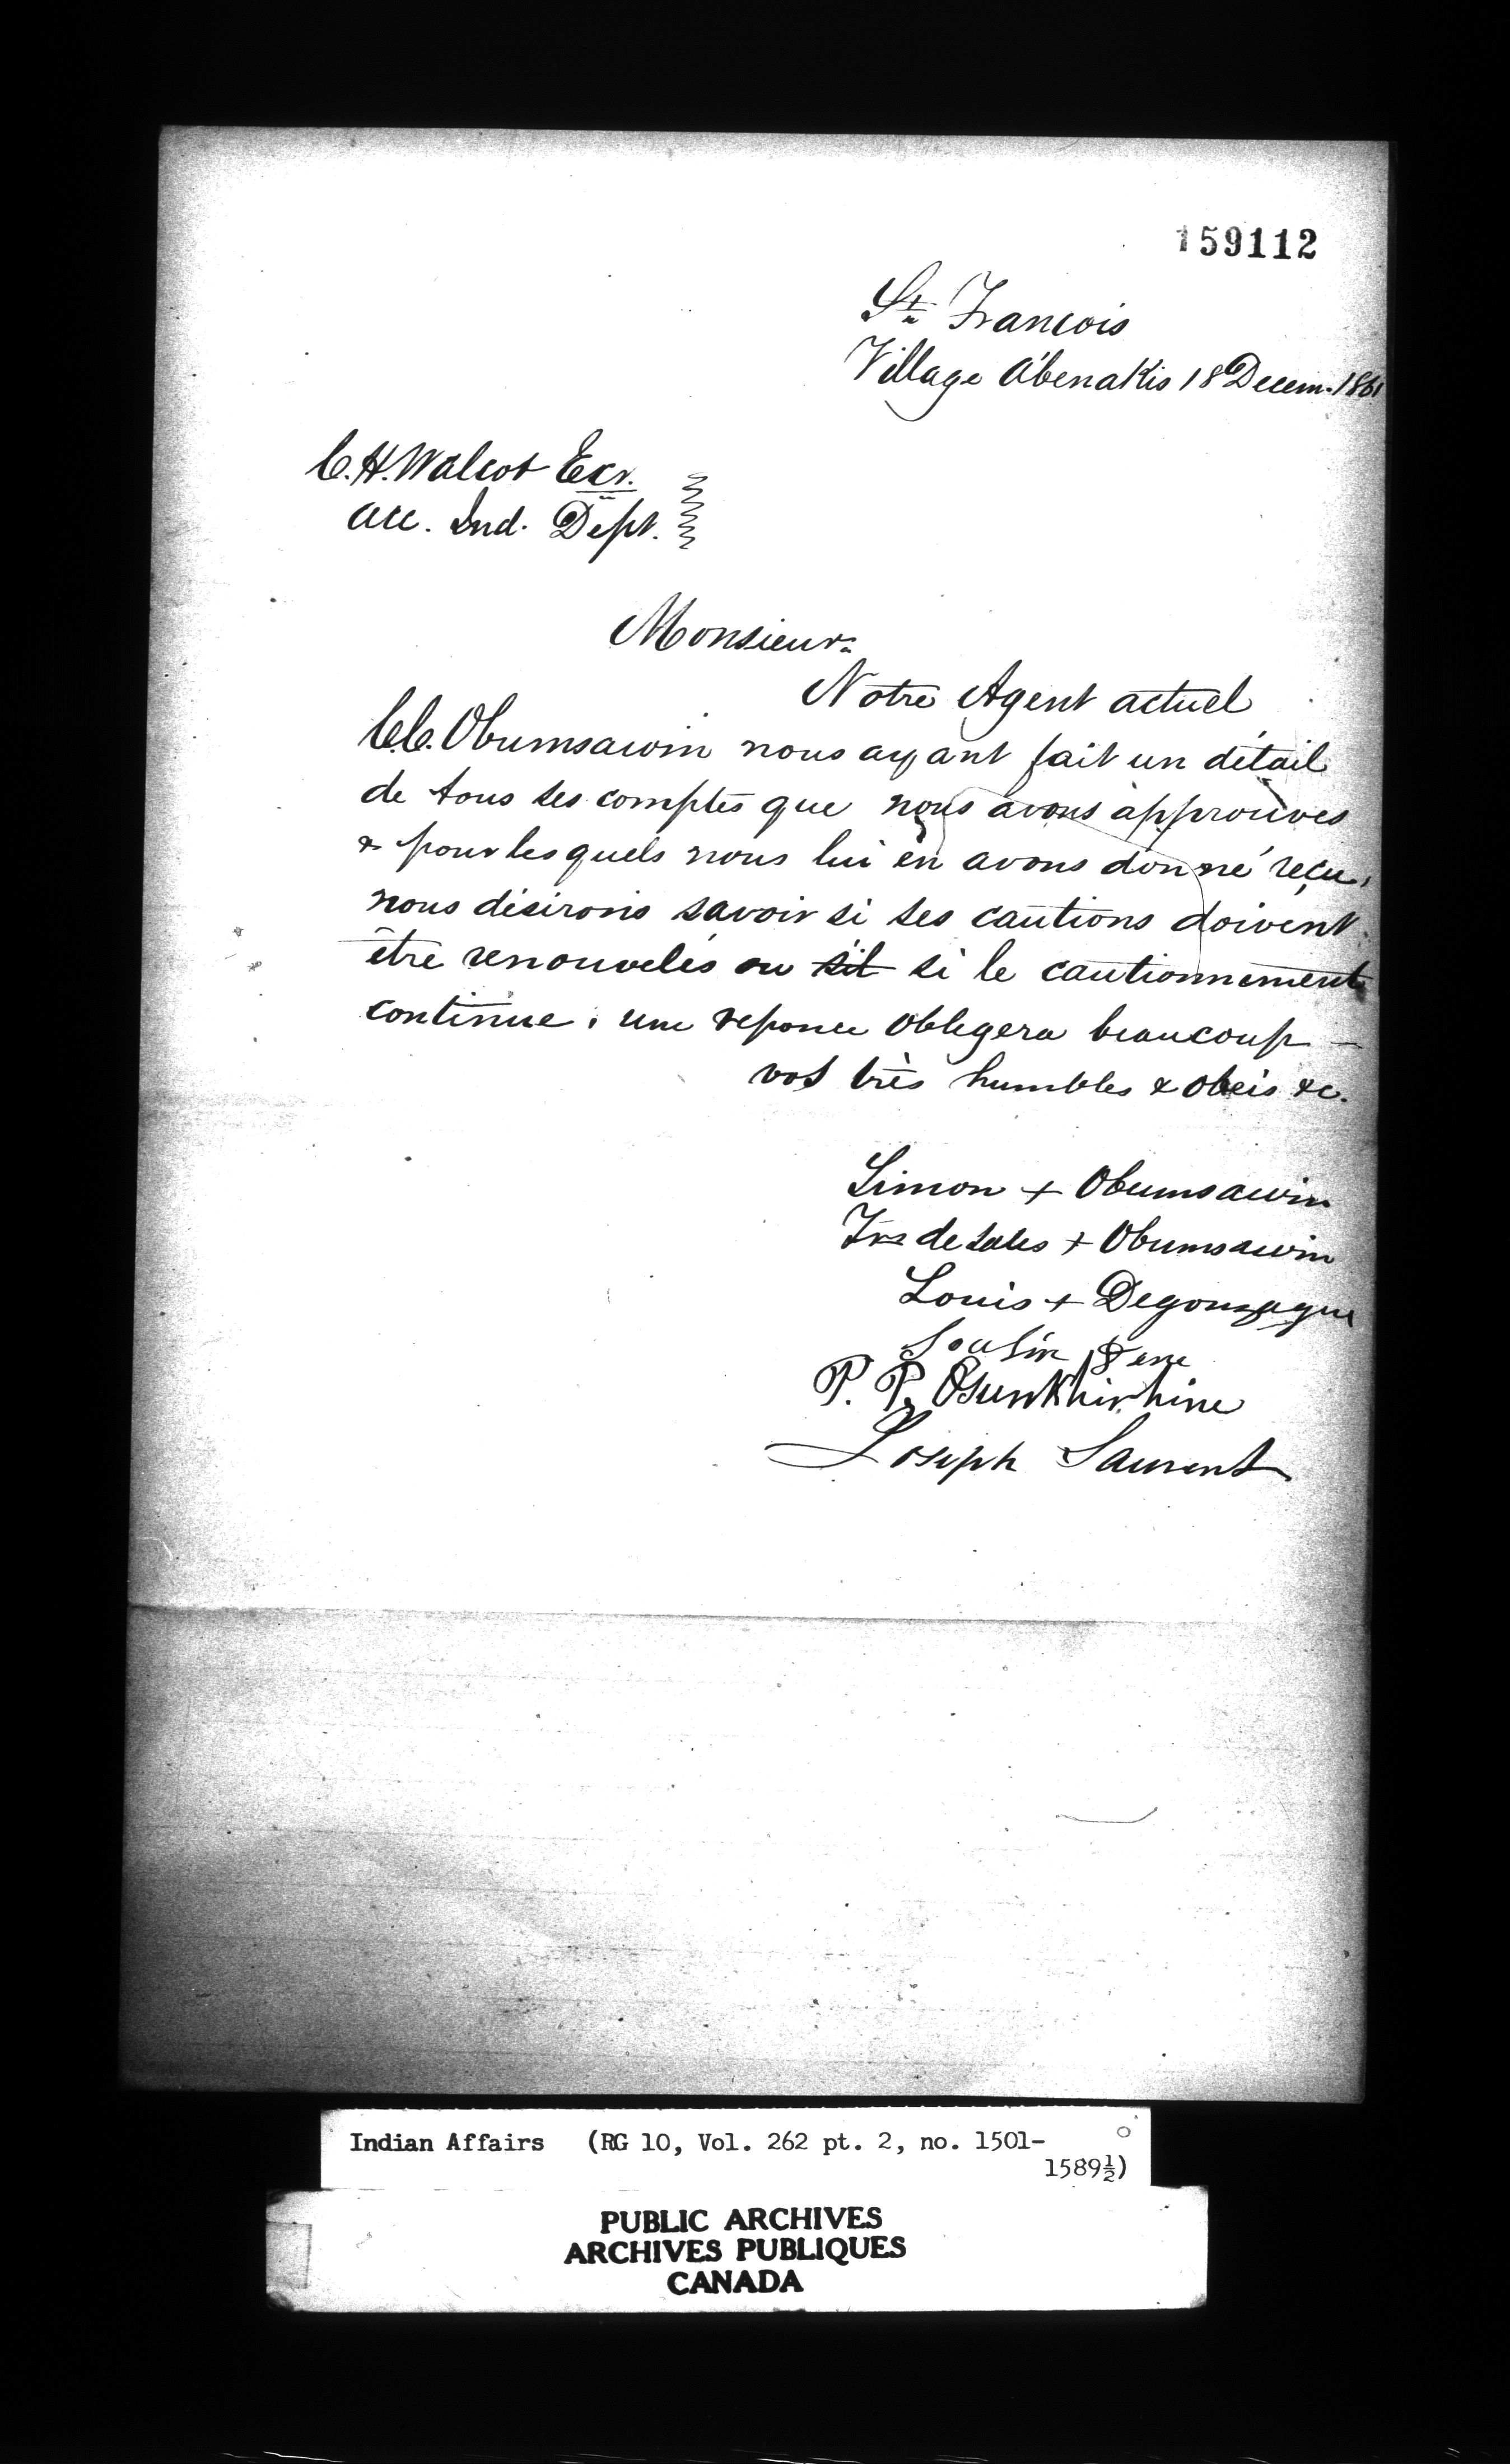 159112
St. Francois
Village Abenakis 18 Decem. 1861
C. H. Walcot Ecr.
Acc. Ind. Dept.
Monsieur.
Notre Agent actuel
C.C. Obumsawin nous ayant fait un détail
de tous ses comptes que nous avons approuves
& pour les quels nous lui en avons donné reçu,
nous désirons savoir si ses cautions doivent
être renouvelés ou s'il si le cautionnement
continue. une reponce oblegera beaucoup –
vos très humbles & obeis &c.
Simon + Obumsawin
Frs de Sales + Obumsawin
Louis + Degonzague
P. P. Osunkhirhine
Joseph Laurent
Indian Affairs (RG 10, Vol. 262 pt. 2, no. 1501-
1589½)
PUBLIC ARCHIVES
ARCHIVES PUBLIQUES
CANADA